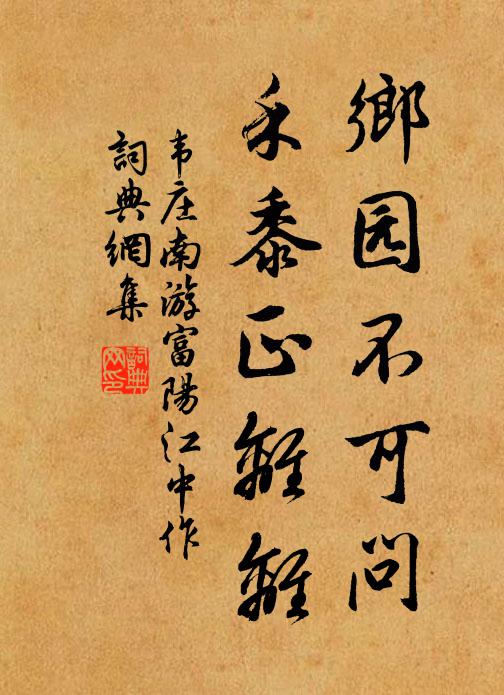 鄉园不可问
禾黍正離離
韦庄南游富陽江中作
詞典網集
詞典网印